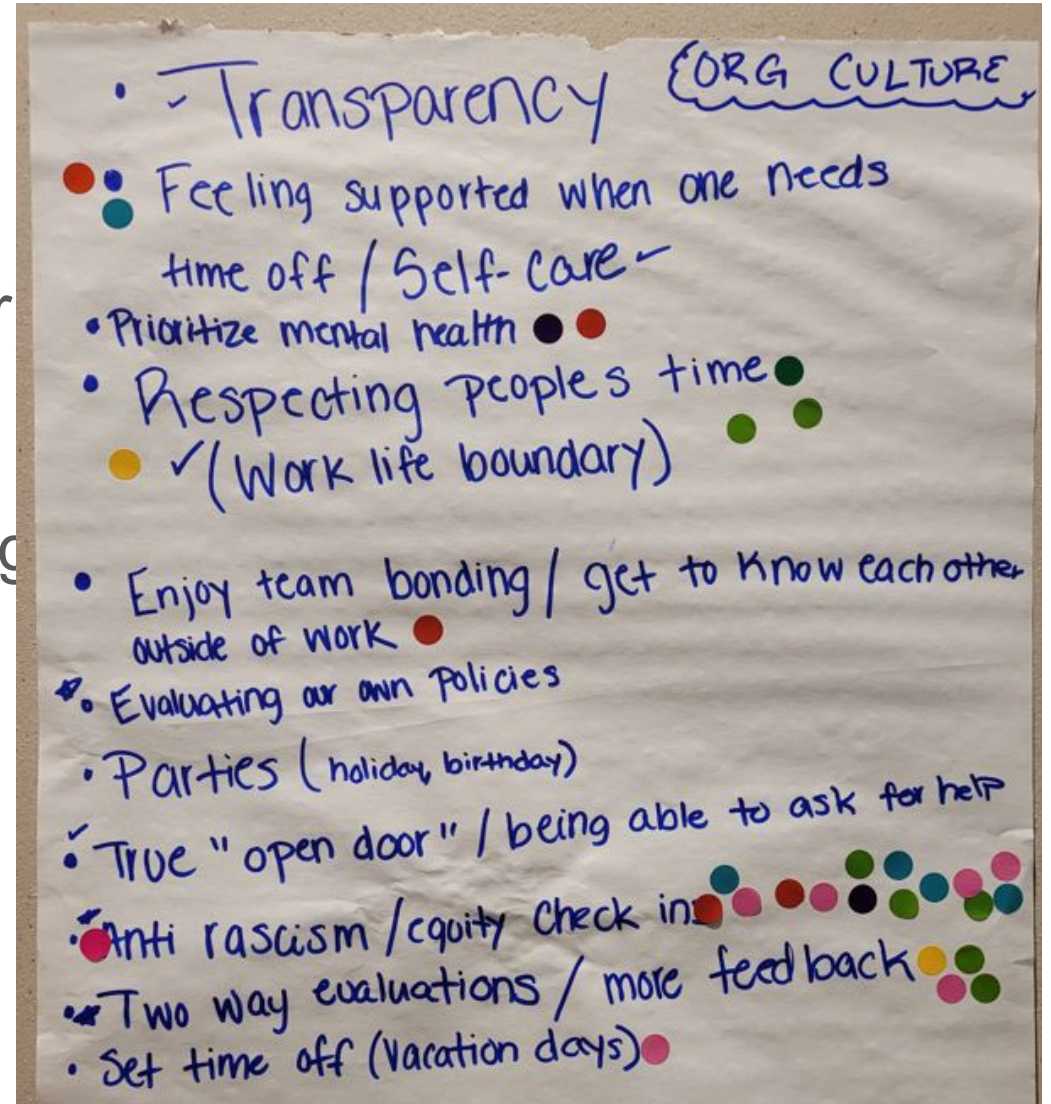 ORG CULTURE
• ✓ Transparency
• Feeling supported when one needs
time off / Self-care ✓
• Prioritize mental health
• Respecting peoples time
✓ (Work life boundary)
• Enjoy team bonding / get to know each other
outside of work
• Evaluating our own policies
• Parties (holiday, birthday)
✓
• True "open door" / being able to ask for help
• Anti rascism / equity check ins
• Two way evaluations / more feedback
• Set time off (vacation days)
r
g